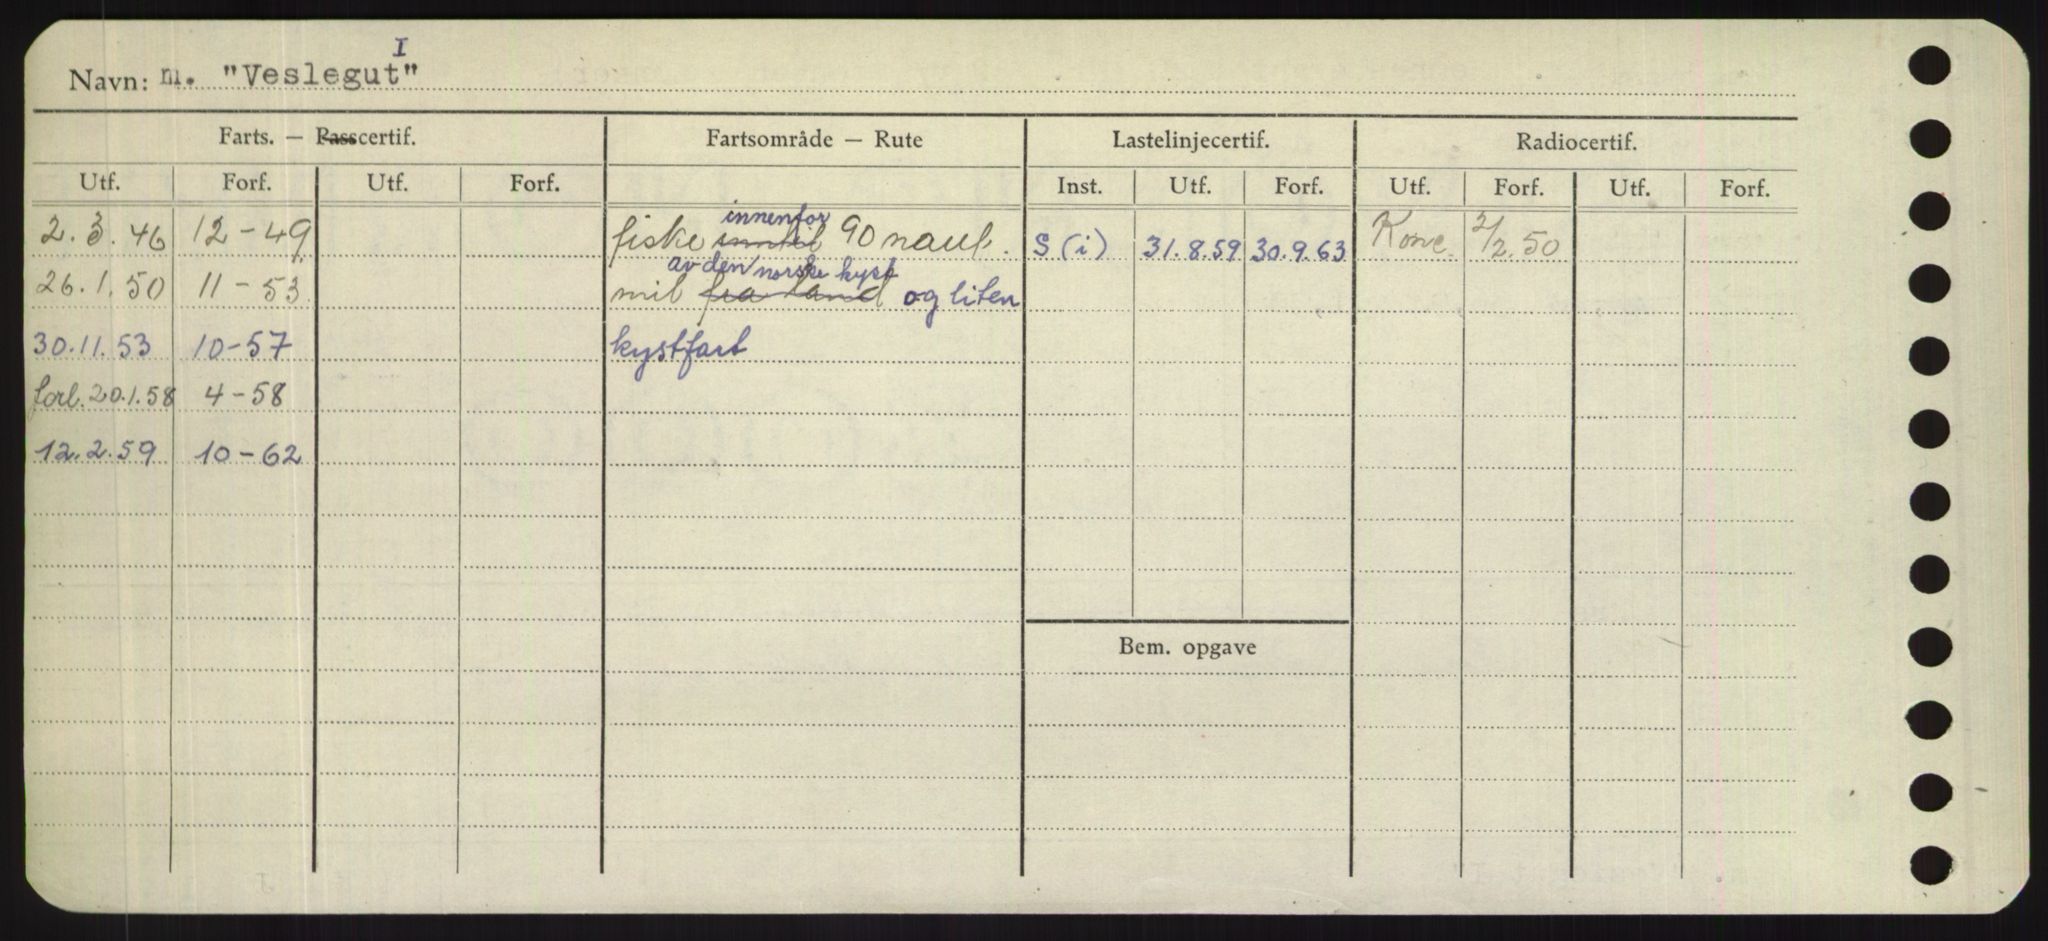 I
Navn: m. "Veslegut"
Farts. — Passcertif. Fartsområde — Rute Lastelinjecertif. Radiocertif.
Utf. Forf. Utf. Forf. Inst. Utf. Forf. Utf. Forf. Utf. Forf.
innenfor
2.3.46 12-49 fiske inntil 90 naut. S (i) 31.8.59 30.9.63 Konc. 2/2.50
av den norske kyst
26.1.50 11-53 mil fra land og liten
30.11.53 10-57 kystfart
forl. 20.1.58 4-58
12.2.59 10-62
Bem. opgave